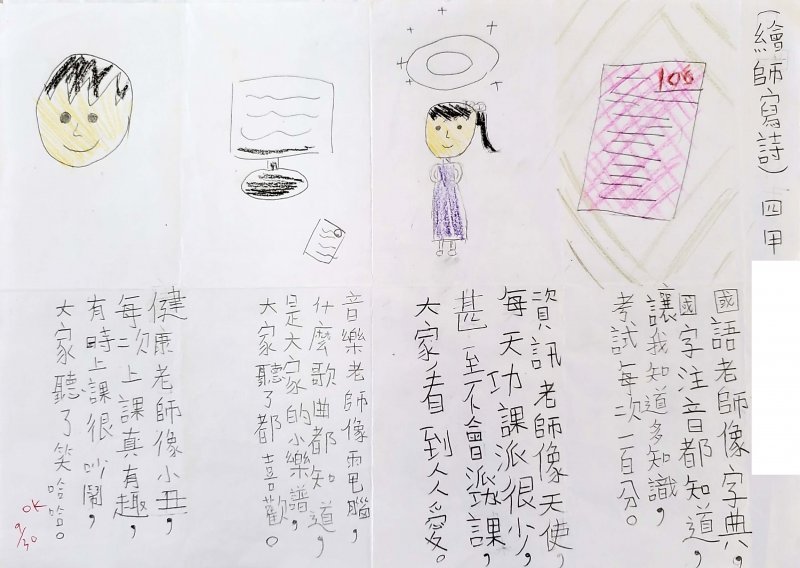 (繪師寫詩) 四甲
100
國語老師像字典,
國字注音都知道,
讓我知道多知識,
考試每次一百分。
資訊老師像天使,
每天功課派很少,
甚至不會派功課,
大家看到人人愛。
音樂老師像電腦,
什麼歌曲都知道,
是大家的小樂譜,
大家聽了都喜歡。
健康老師像小丑,
每次上課真有趣,
有時上課很吵鬧,
大家聽了笑哈哈。
OK
9/30